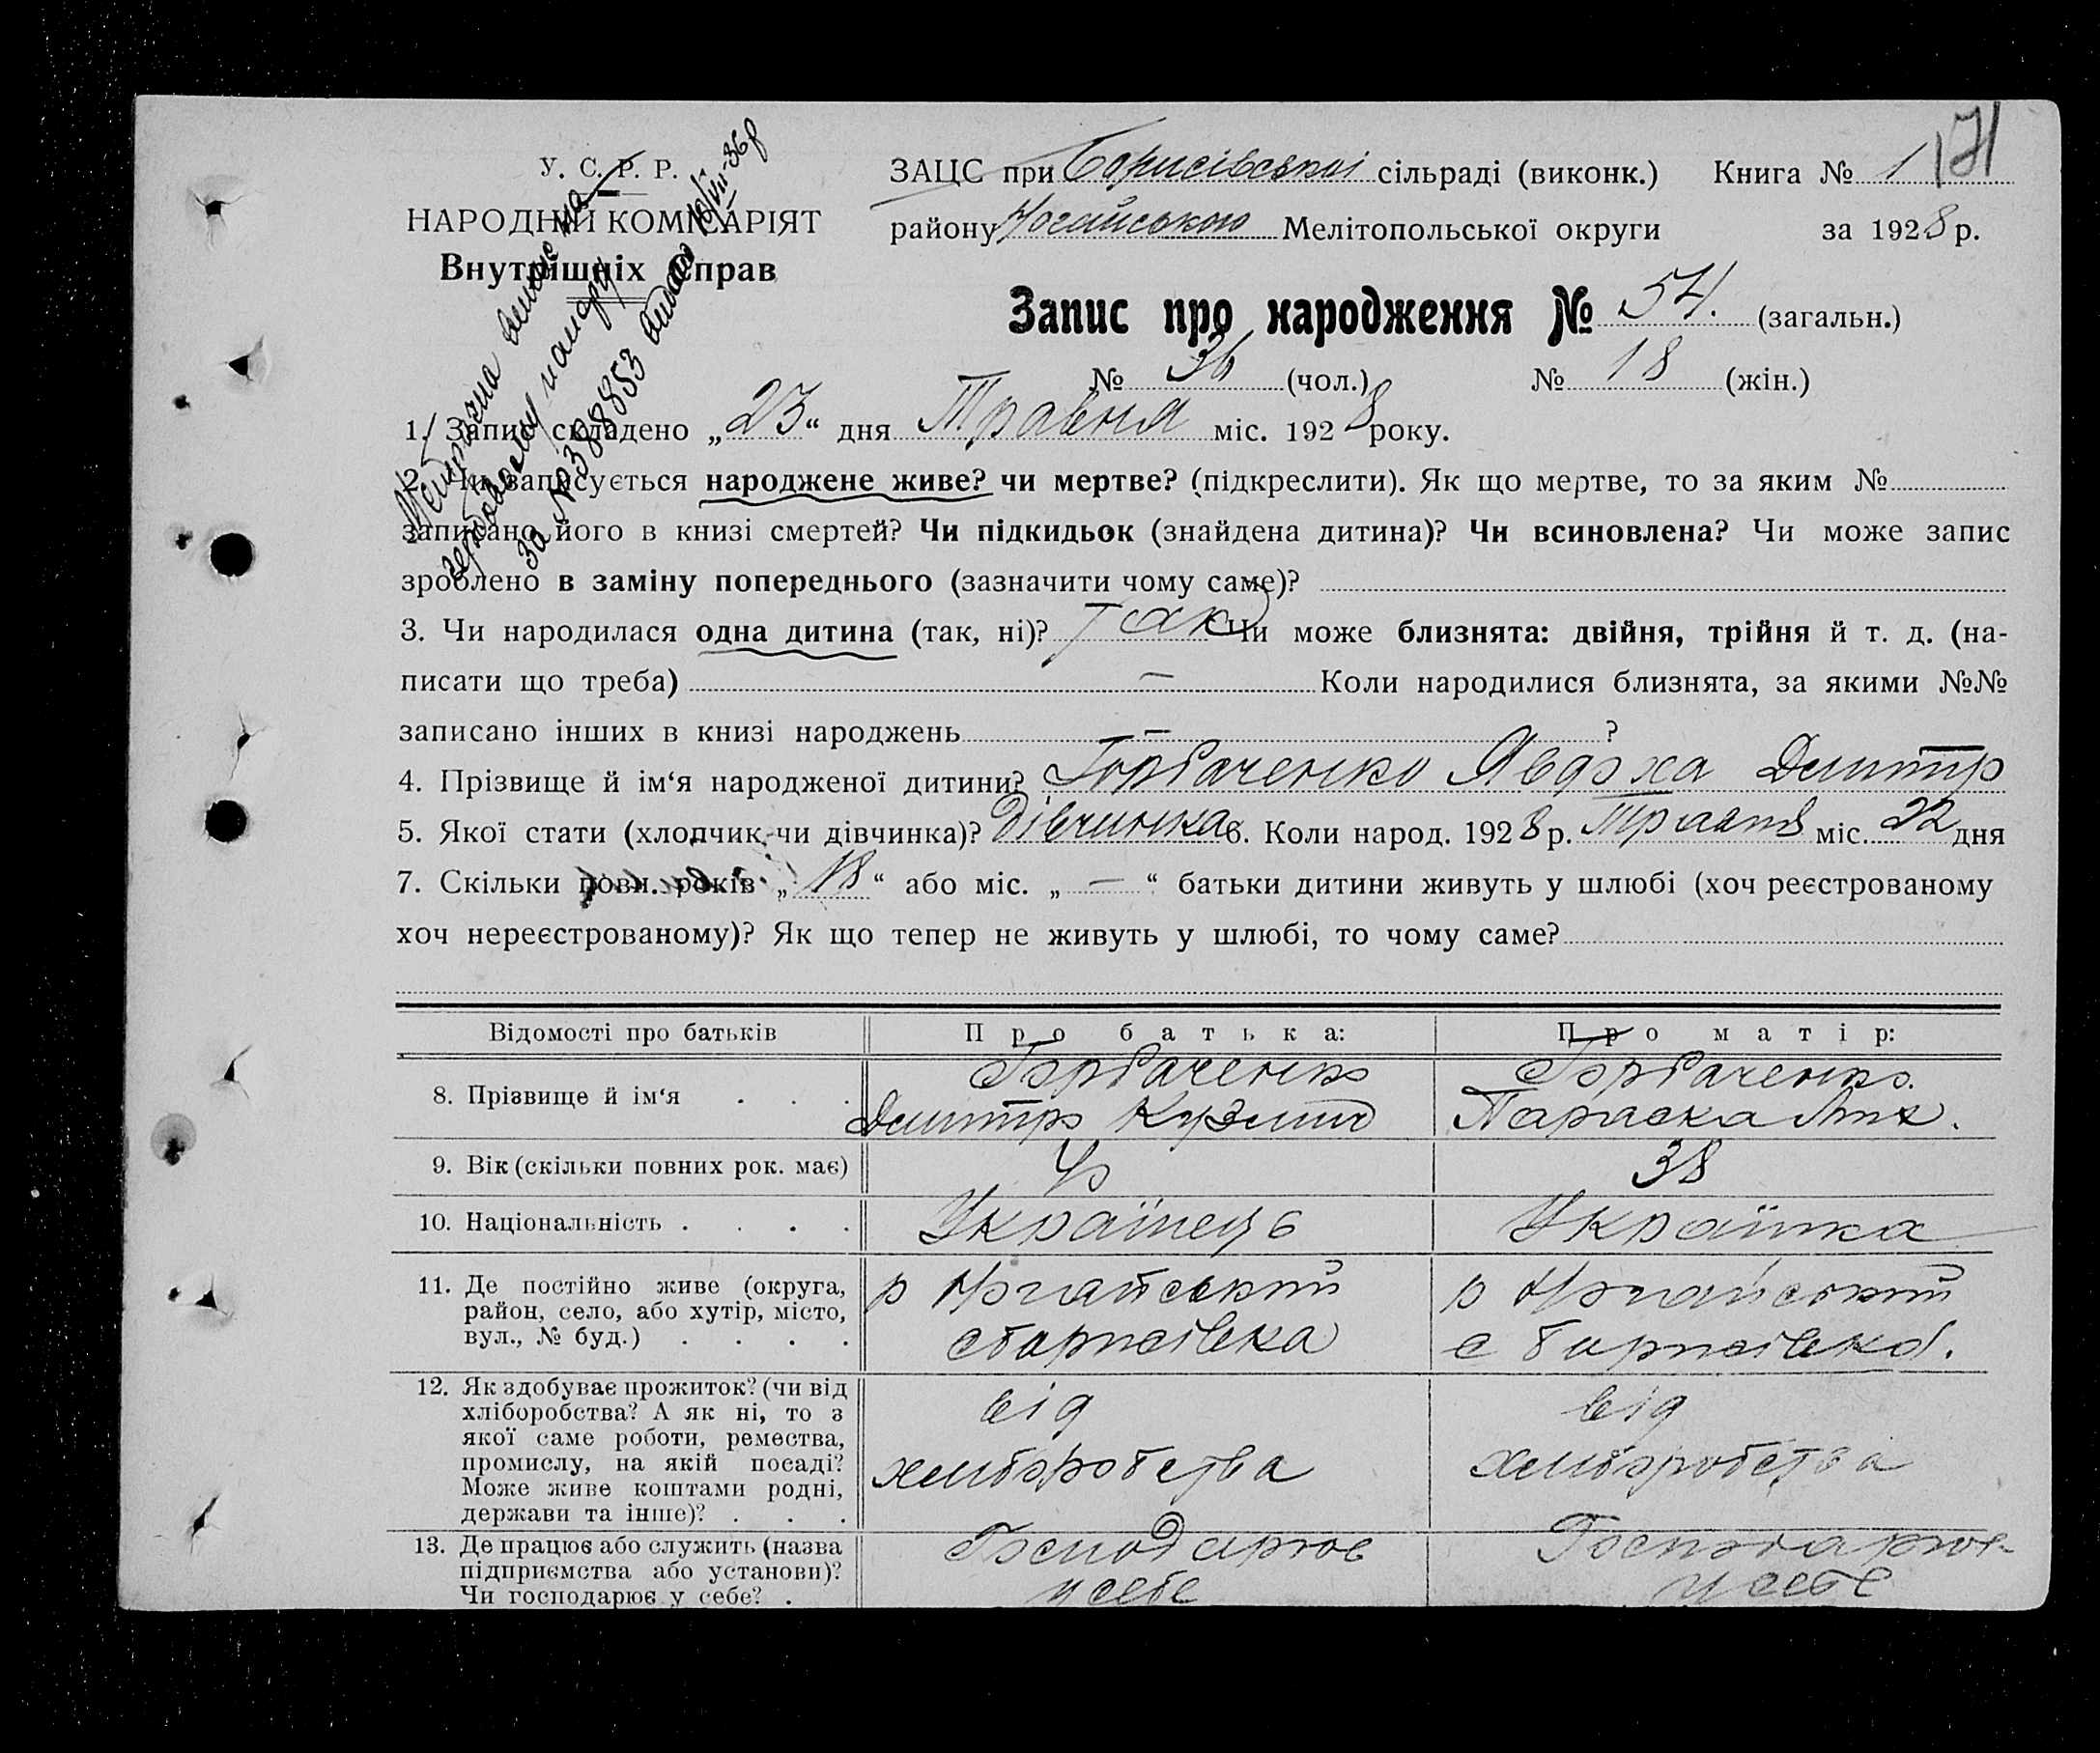 171
У. С. Р. Р.
НАРОДНІЙ КОМІСАРІЯТ
Внутрішніх Справ
Метрична виписка на
гербовому папері
за №388853 видана 16/VII-36р
ЗАЦС при Борисівській сільраді (виконк.) Книга № 1
району Ногайського Мелітопольської округи за 1928 р.
Запис про народження № 54. (загальн.)
№ 36 (чол.) № 18 (жін.)
1. Запис складено „23“ дня Травня міс. 1928 року.
2. Чи записується народжене живе? чи мертве? (підкреслити). Як що мертве, то за яким №
записано його в книзі смертей? Чи підкидьок (знайдена дитина)? Чи всиновлена? Чи може запис
зроблено в заміну попереднього (зазначити чому саме)?
3. Чи народилася одна дитина (так, ні)? Так Чи може близнята: двійня, трійня й т. д. (на-
писати що треба) — Коли народилися близнята, за якими №№
записано інших в книзі народжень — ?
4. Прізвище й ім‘я народженої дитини? Горбаченко Явдоха Дмитр
5. Якої стати (хлопчик чи дівчинка)? дівчинка 6. Коли народ. 1928 р. Травня міс. 22 дня
7. Скільки повн. років „18“ або міс. „—“ батьки дитини живуть у шлюбі (хоч реєстрованому
хоч нереєстрованому)? Як що тепер не живуть у шлюбі, то чому саме?
Відомості про батьків Про батька: Про матір:
8. Прізвище й ім‘я . . . Горбаченко Горбаченко.
Дмитро Кузмич Параска
9. Вік (скільки повних рок. має) 38
10. Національність . . . . Українець Українка
11. Де постійно живе (округа, р Ногайський р Ногайський
район, село, або хутір, місто, с Борисівка с Борисівка.
вул., № буд.) . . . .
12. Як здобуває прожиток? (чи від від від
хліборобства? А як ні, то з
якої саме роботи, ремества, хліборобства хліборобства
промислу, на якій посаді?
Може живе коштами родні,
держави та інше)? . . .
13. Де працює або служить (назва Господарює Господарює
підприємства або установи)? у себе у себе
Чи господарює у себе? .